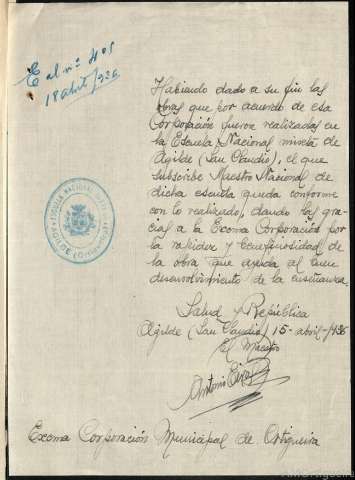 E al nº 405
18 abril/936
Habiendo dado a su fin las
obras que por acuerdo de esa
Corporación fueron realizadas en
la Escuela Nacional mixta de
Agilde (San Claudio), el que
subscribe Maestro Nacional de
dicha escuela queda conforme
con lo realizado, dando las gra-
cias a la Excma Corporación por
la rapidez y beneficiosidad de
la obra que ayuda al buen
desenvolvimiento de la enseñanza.
Salud y República
Agilde (San Claudio) 15-abril-1936
El Maestro
Antonio
Excma Corporación Municipal de Ortigueira
ESCUELA NACIONAL
AGILDE